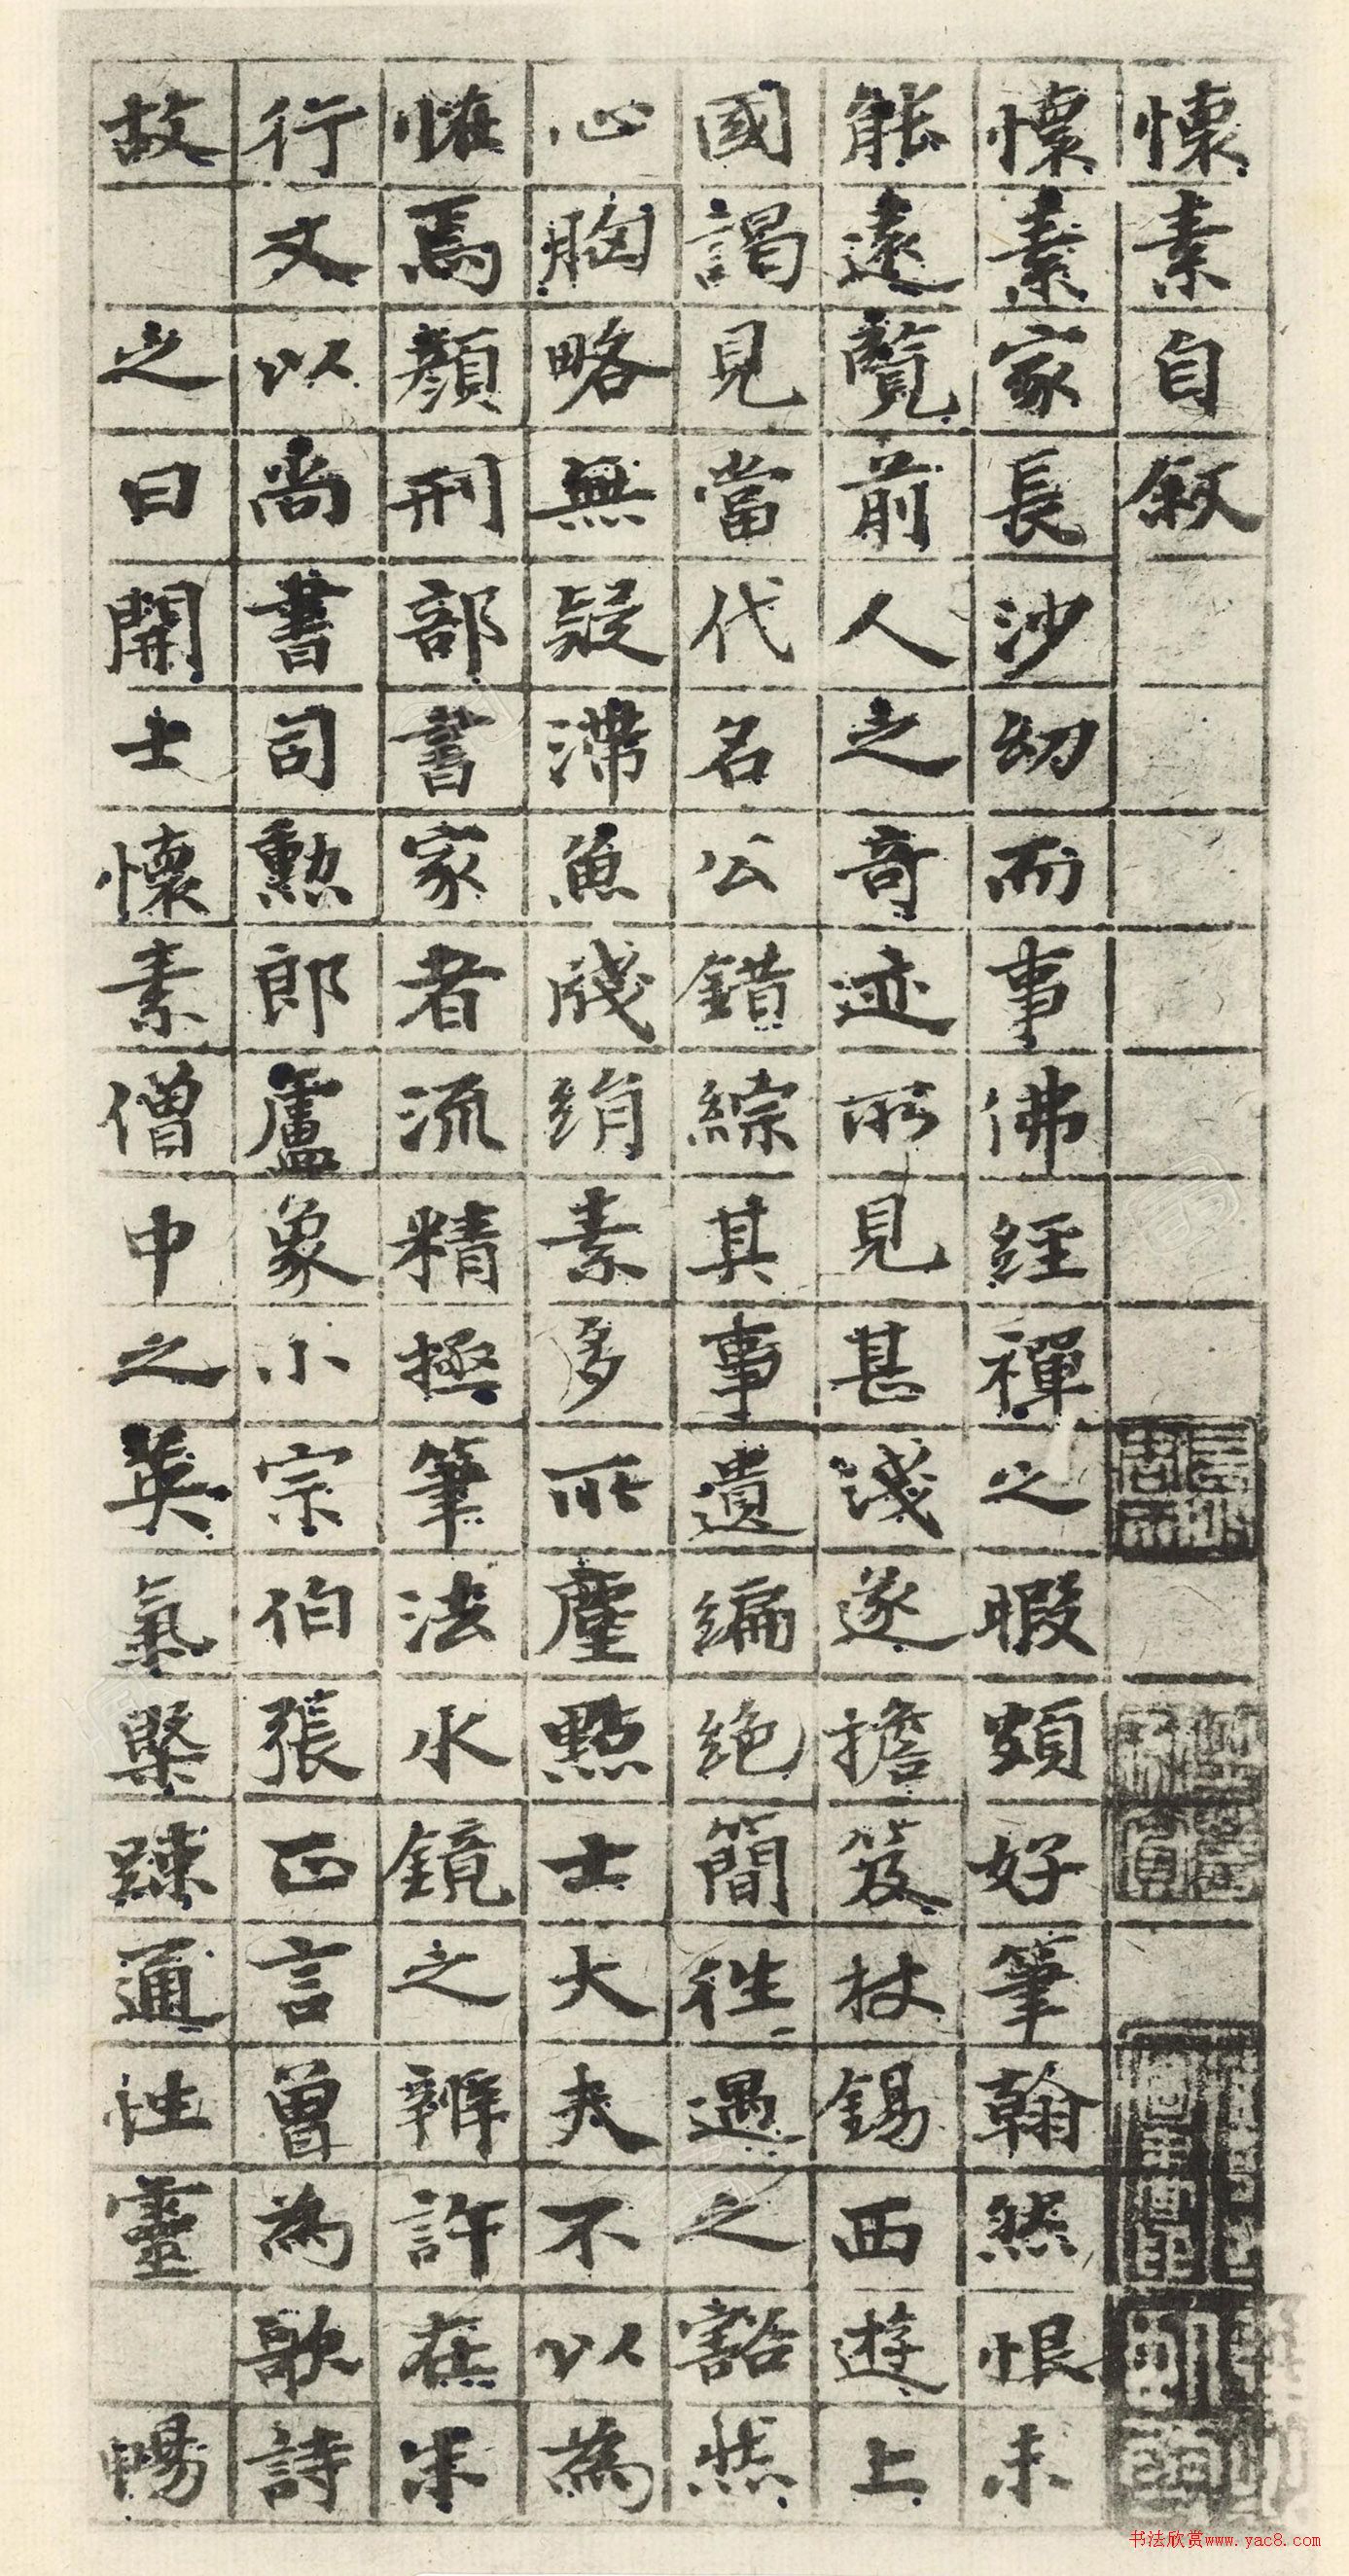 懷素自敘
懷素家長沙幼而事佛經禪之暇頗好筆翰然恨未
能遠覽前人之奇迹所見甚淺遂擔笈杖錫西遊上
國謁見當代名公錯綜其事遺編絕簡往往遇之豁然
心胸略無疑滯魚牋絹素多所塵點士大夫不以為
恠焉顏刑部書家者流精極筆法水鏡之辨許在末
行又以尚書司勳郎盧象小宗伯張正言曾為歌詩
故之曰開士懷素僧中之英氣槩疎通性靈暢
书法欣赏www.yac8.com